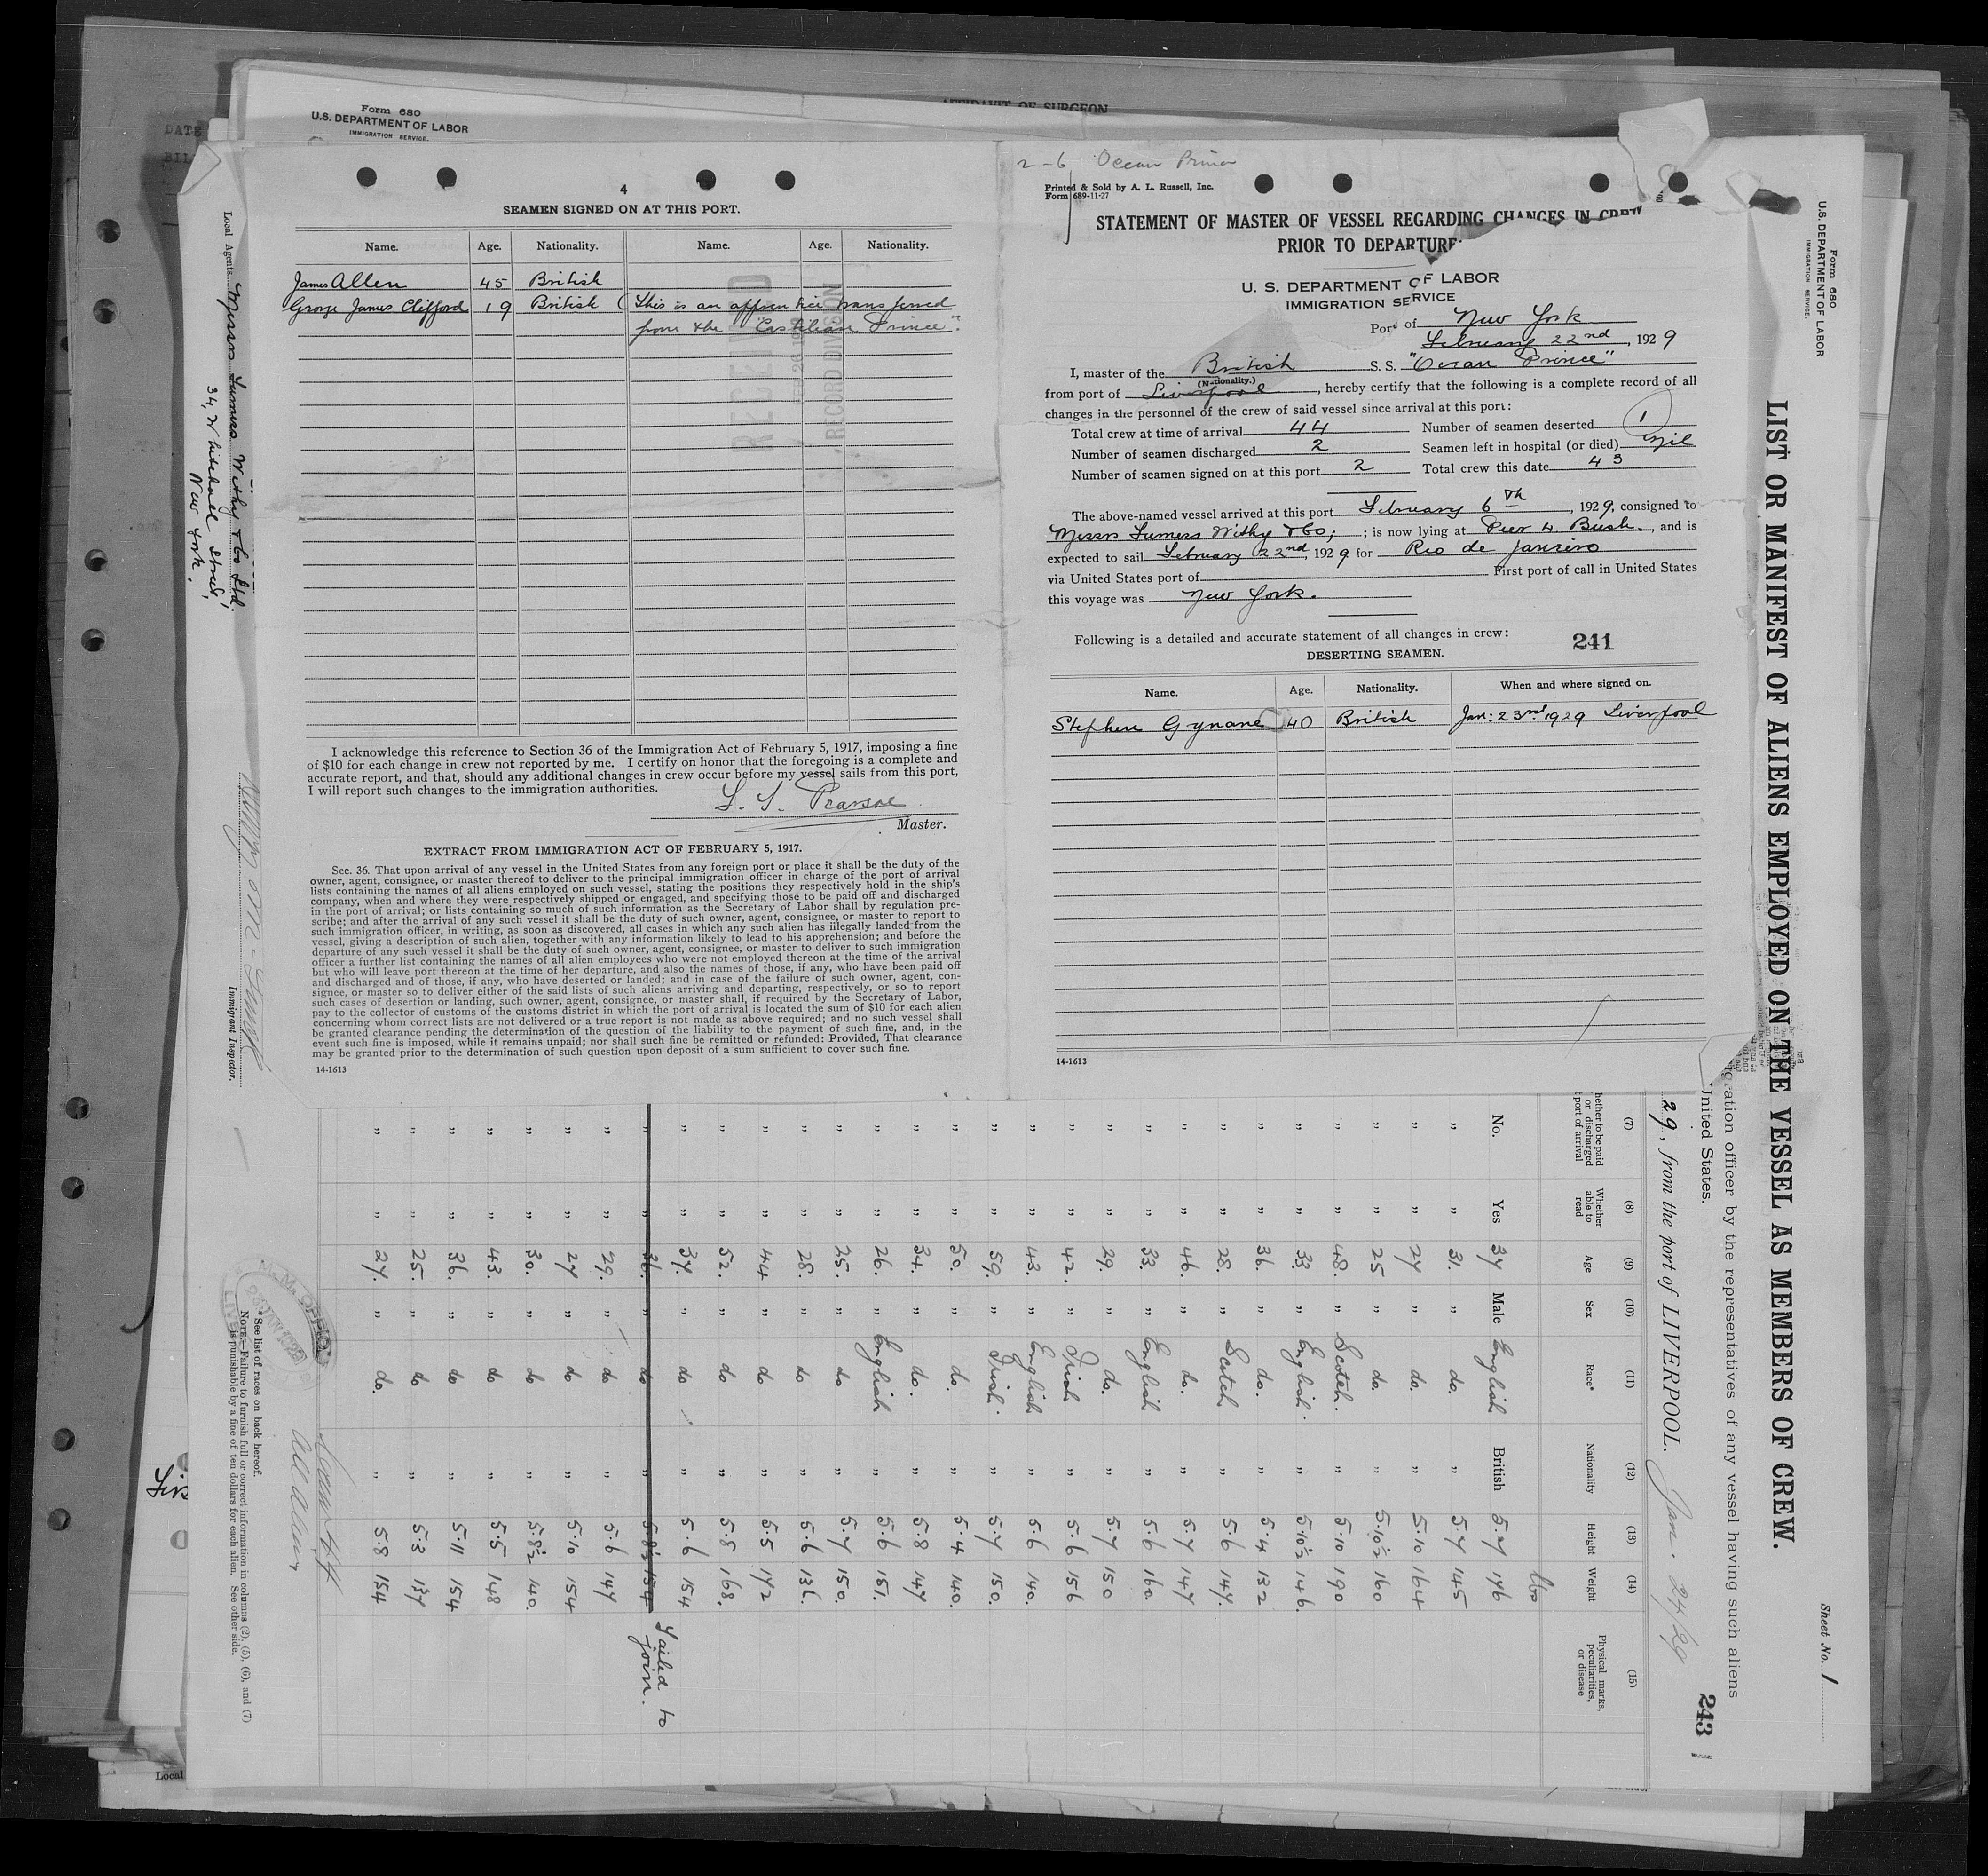 AFFIDAVIT OF SURGEON
Form 680
U.S. DEPARTMENT OF LABOR
IMMIGRATION SERVICE.
DATE
4
SEAMEN SIGNED ON AT THIS PORT.
Name. Age. Nationality. Name. Age. Nationality.
James Allen 45 British
George James Clifford 19 British (This is an apprentice transferred
from the "Castilian Prince".
RECEIVED
RECORD DIVISION
I acknowledge this reference to Section 36 of the Immigration Act of February 5, 1917, imposing a fine
of $10 for each change in crew not reported by me. I certify on honor that the foregoing is a complete and
accurate report, and that, should any additional changes in crew occur before my vessel sails from this port,
I will report such changes to the immigration authorities.
Master.
EXTRACT FROM IMMIGRATION ACT OF FEBRUARY 5, 1917.
Sec. 36. That upon arrival of any vessel in the United States from any foreign port or place it shall be the duty of the
owner, agent, consignee, or master thereof to deliver to the principal immigration officer in charge of the port of arrival
lists containing the names of all aliens employed on such vessel, stating the positions they respectively hold in the ship's
company, when and where they were respectively shipped or engaged, and specifying those to be paid off and discharged
in the port of arrival; or lists containing so much of such information as the Secretary of Labor shall by regulation pre-
scribe; and after the arrival of any such vessel it shall be the duty of such owner, agent, consignee, or master to report to
such immigration officer, in writing, as soon as discovered, all cases in which any such alien has illegally landed from the
vessel, giving a description of such alien, together with any information likely to lead to his apprehension; and before the
departure of any such vessel it shall be the duty of such owner, agent, consignee, or master to deliver to such immigration
officer a further list containing the names of all alien employees who were not employed thereon at the time of the arrival
but who will leave port thereon at the time of her departure, and also the names of those, if any, who have been paid off
and discharged and of those, if any, who have deserted or landed; and in case of the failure of such owner, agent, con-
signee, or master so to deliver either of the said lists of such aliens arriving and departing, respectively, or so to report
such cases of desertion or landing, such owner, agent, consignee, or master shall, if required by the Secretary of Labor,
pay to the collector of customs of the customs district in which the port of arrival is located the sum of $10 for each alien
concerning whom correct lists are not delivered or a true report is not made as above required; and no such vessel shall
be granted clearance pending the determination of the question of the liability to the payment of such fine, and, in the
event such fine is imposed, while it remains unpaid; nor shall such fine be remitted or refunded: Provided, That clearance
may be granted prior to the determination of such question upon deposit of a sum sufficient to cover such fine.
14-1613
2-6 Ocean Prince
Printed & Sold by A. L. Russell, Inc.
Form 689-11-27
STATEMENT OF MASTER OF VESSEL REGARDING CHANGES IN CREW
PRIOR TO DEPARTURE
U. S. DEPARTMENT OF LABOR
IMMIGRATION SERVICE
Port of New York
February 22nd, 1929
I, master of the British S. S. "Ocean Prince"
(Nationality.)
from port of Liverpool, hereby certify that the following is a complete record of all
changes in the personnel of the crew of said vessel since arrival at this port:
Total crew at time of arrival 44 Number of seamen deserted 1
Number of seamen discharged 2 Seamen left in hospital (or died) nil
Number of seamen signed on at this port 2 Total crew this date 43
The above-named vessel arrived at this port February 6th, 1929, consigned to
Messrs Furness Withy & Co; ; is now lying at Pier 4 Bush., and is
expected to sail February 22nd, 1929 for Rio de Janeiro
via United States port of First port of call in United States
this voyage was New York.
Following is a detailed and accurate statement of all changes in crew:
241
DESERTING SEAMEN.
Name. Age. Nationality. When and where signed on.
Stephen Gynane 40 British Jan: 23rd 1929 Liverpool
14-1613
Form 680
U.S. DEPARTMENT OF LABOR
IMMIGRATION SERVICE.
Sheet No. 1
LIST OR MANIFEST OF ALIENS EMPLOYED ON THE VESSEL AS MEMBERS OF CREW.
ation officer by the representatives of any vessel having such aliens
United States.
243
29, from the port of LIVERPOOL. Jan. 24/29
(7) (8) (9) (10) (11) (12) (13) (14) (15)
hether to be paid or discharged port of arrival
Whether able to read
Age
Sex
Race*
Nationality
Height
Weight
Physical marks, peculiarities, or disease
lbs
No. Yes 37 Male English British 5.7 146
" " 31. " do. " 5.7 145
" " 27 " do. " 5.10 164
" " 25 " do. " 5.10½ 160
" " 48. " Scotch. " 5.10 190
" " 33. " English. " 5.10½ 146.
" " 36. " do. " 5.4 132
" " 28. " Scotch " 5.6 147.
" " 46. " do. " 5.7 147
" " 33. " English " 5.6 160.
" " 29. " do. " 5.7 150
" " 42. " Irish " 5.6 156
" " 43. " English " 5.6 140.
" " 59. " Irish. " 5.7 150.
" " 50. " do. " 5.4 140.
" " 34. " do. " 5.8 147
" " 26. " English " 5.6 151.
" " 25. " do " 5.7 150.
" " 28. " do " 5.6 136.
" " 44 " do " 5.5 172
" " 52. " do " 5.8 168.
" " 37. " do " 5.6 154
" " 36. " do " 5.8½ 154 Failed to join.
" " 29. " do " 5.6 147
" " 27 " do " 5.10 154
" " 30. " do " 5.8½ 140.
" " 43. " do " 5.5 148
" " 36. " do " 5.11 154
" " 25. " do " 5.3 137
" " 27. " do. " 5.8 154
* See list of races on back hereof.
NOTE.—Failure to furnish full or correct information in columns (2), (5), (6), and (7)
is punishable by a fine of ten dollars for each alien. See other side.
Local Agents Messrs Furness Withy & Co Ltd.
34, Whitehall Street,
New York.
Immigrant Inspector.
Local